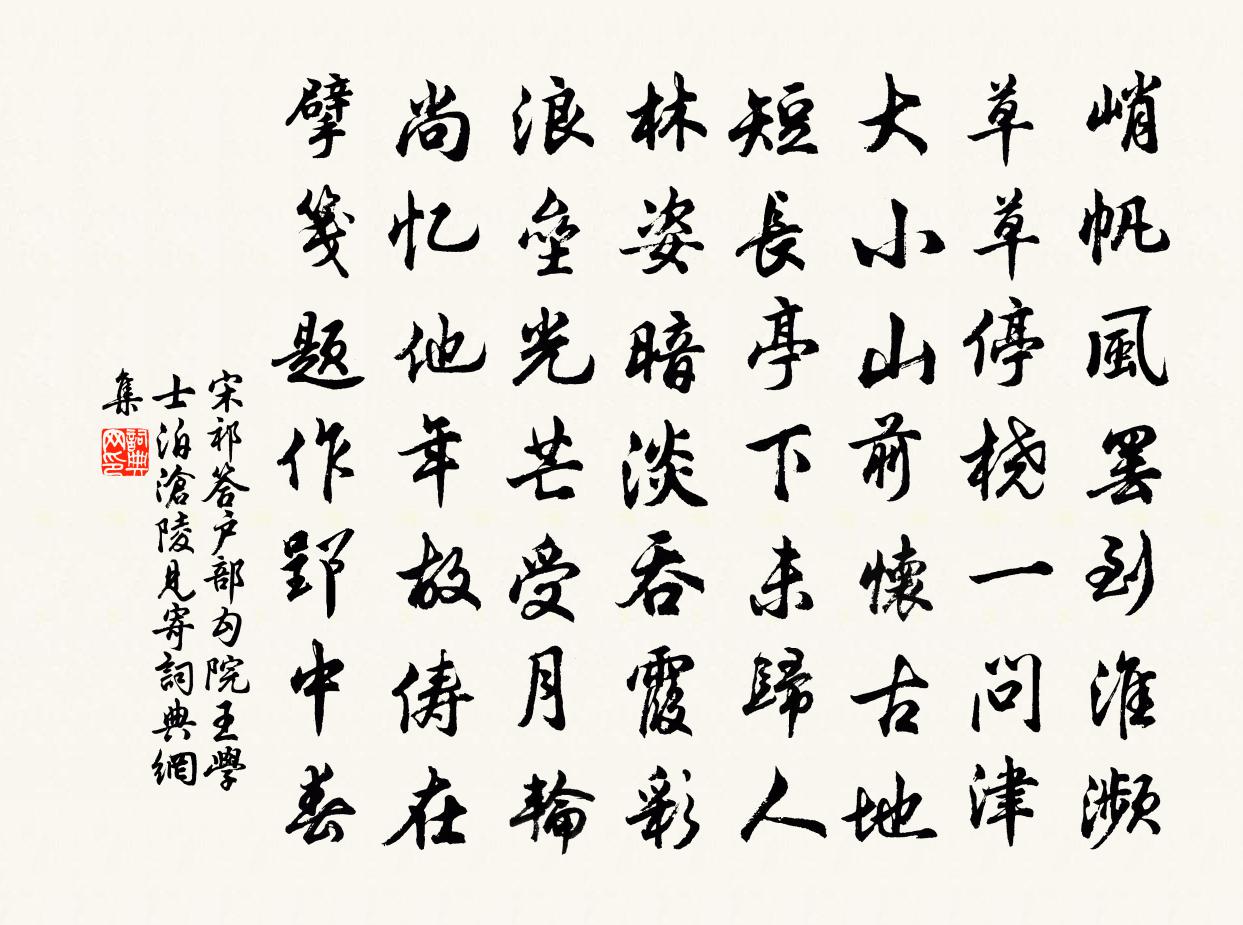 峭帆風罢到淮濒
草草停桡一问津
大小山前懷古地
短長亭下未歸人
林姿暗淡吞霞彩
浪壘光芒受月輪
尚忆他年故俦在
擘箋题作郢中春
宋祁答户部勾院王學
士泊滄陵見寄詞典網
集
詞典网印